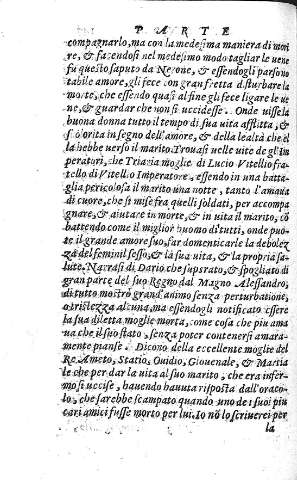 PARTE
compagnarlo, ma con la medesima maniera di mori
re, & facendosi nel medesimo modo tagliar le uene
fu questo saputo da Nerone, & essendogli parso no
tabile amore, gli fece con gran fretta disturbare la
morte, che essendo quasi al fine gli fece ligare le ue
ne, & guardar che non si uccidesse. Onde uisse la
buona donna tutto il tempo di sua uita afflitta, &
scolorita in segno dell'amore, & della lealtà che el
la hebbe uerso il marito. Trouasi nelle uite de gli Im
peratori, che Triaria moglie di Lucio Vitellio fra-
tello di Vitellio Imperatore, essendo in una batta-
glia pericolosa il marito una notte, tanto l'amaua
di cuore, che si mise fra quelli soldati, per accompa
gnare, & aiutare in morte, & in uita il marito, co
battendo come il miglior huomo di tutti, onde puo-
te il grande amore suo, far domenticarle la debolez
za del feminil sesso, & la sua uita, & la propria sa-
lute. Narrasi di Dario che superato, & spogliato di
gran parte del suo Regno dal Magno Alessandro,
di tutto mostrò grand'animo senza perturbatione,
o tristezza alcuna, ma essendogli notificato essere
la sua diletta moglie morta, come cosa che piu ama
ua che il suo stato, senza poter contenersi amara-
mente pianse. Dicono della eccellente moglie del
Re Ameto, Statio, Ouidio, Giouenale, & Martia
le che per dar la uita al suo marito, che era infer-
mo si uccise, hauendo hauuta risposta dall'oraco-
lo, che sarebbe scampato quando uno de i suoi piu
cari amici fusse morto per lui. Io nō lo scriuerei per
la